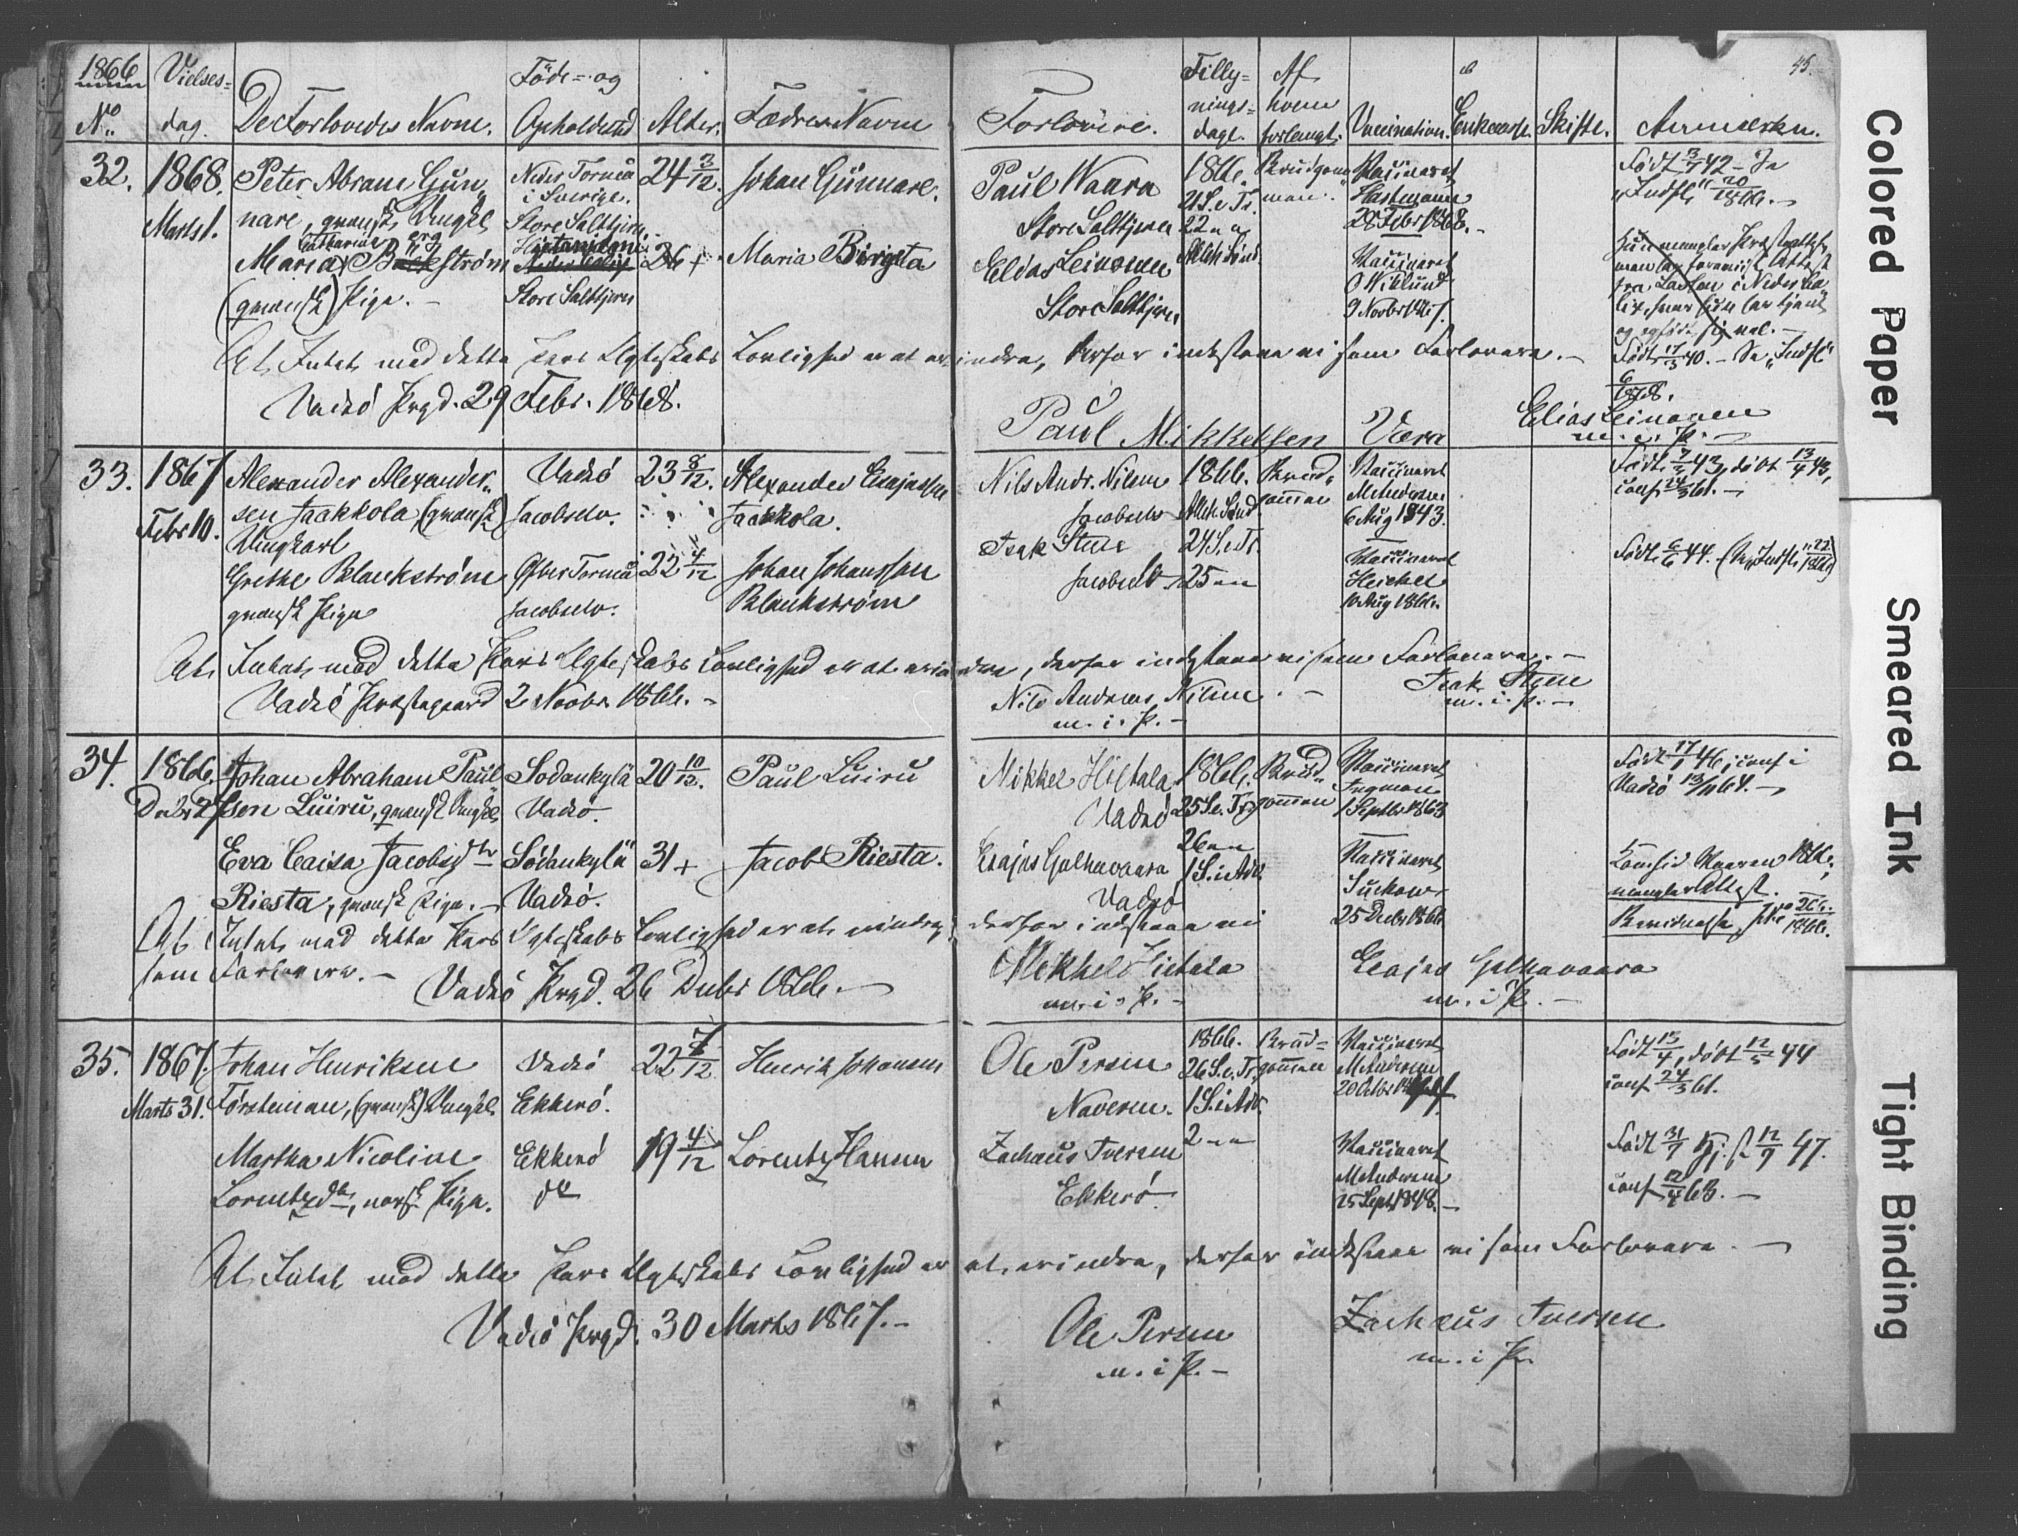 1866
No.
Vielses-
dag.
De Forlovedes Navne.
Føde- og
Opholdssted
Alder.
Fædres Navne
Forlovere.
Tilly-
nings-
dage.
Af
hvem
forlangt.
Vaccination.
Skifte.
Anmærkn.
45.
32.
1868.
Marts 1.
Peter Abram Gun-
nare, qvænsk Ungkl.
Catharina
Maria
strøm
(qvænsk) Pige. -
Neder Torneå
i Sverige.
Store Salttjern.
Store Saltjern
24 3/12.
26 +
Johan Gunnare.
Maria Birgita
Paul Waara
Store Saltjern
Elias Leinonen
Store Saltjern
1866.
21 S. e. Tr.
22 " "
Brudgom-
men.
Vaccineret
28 Febr 1868. -
Vaccineret
O Wiklund
Født 3/7 42 -
"Indfl."
Hun mangler
og opført sig vel. -
Født 17/3 40. - Se "Indfl"
6/1868.
At Intet mod dette Pars Ægteskabs Lovlighed er at erindre, derfor indestaae vi som Forlovere. -
Vadsø Prgd. 29 Febr. 1868.
Paul Mikkelsen Vara
Elias Leinonen
m. i. P. -
33.
1867
Febr 10.
Alexander Alexander-
sen Jaakkola, (qvænsk)
Ungkarl
Grethe Blankstrøm
qvænsk Pige
Vadsø
Jacobselv.
Øfver Torneå
Jacobselv.
23 8/12.
22 4/12
Alexander Esajassen
Jaakkola.
Johan Johanssen
Blankstrøm
Nils Andr. Nilsen
Jacobselv
Isak Steen
Jacobselv
1866.
24 S. e. Tr.
25 " "
Brud-
gommen
Vaccineret
M. Andersen
6 Aug 1843.
Vaccineret
Heickel
10 Aug 1866.
Født 7/3 43, døbt 13/4 43,
conf 14/ 61. -
Født 6/6 44. (Se "Indfl"
At Intet mod dette Pars Ægteskabs Lovlighed er at erindre, derfor indestaae vi som Forlovere. -
Vadsø Præstegaard 2 Novbr 1866. -
Nils Andreas Nilsen
m. i. P. -
Isak Steen
m. i. P. -
34.
1866.
Decbr 27
Johan Abraham Paul-
sen Luiru, qvænsk Ungkl.
Eva Caisa Jacobsdtr
Riesta, qvænsk Pige. -
Sodankylä
Vadsø.
Sodankylä
Vadsø.
20 10/12.
31 +
Paul Luiru
Jacob Riesta.
Mikkel Hietala
Vadsø
Esajas Galhavaara
Vadsø
1866.
25 S. e. Tr.
26 " "
1 S. i Adv.
Brud-
gommen
Vaccineret
Ingman
1 Septbr 1863
Vaccineret
25 Decbr 1866
Født 17/1 46, conf i
Vadsø 13/11 64. -
Kom hid Vaaren 1866,
mangler Attest.
At Intet mod dette Pars Ægteskabs Lovlighed er at erindre, derfor indestaae vi
som Forlovere. -
Vadsø Prgd. 26 Decbr 1866. -
Mikkel Hietala
m. i. P. -
Esajas Galhavaara
m. i. P. -
35.
1867.
Marts 31.
Johan Henriksen
Førsteman, (qvænsk) Ungkl.
Martha Nicoline
Lorentzdtr, norsk Pige.
Vadsø
Ekkerø.
Ekkerø
do
22 7/12
19 4/12
Henrik Johansen
Lorentz Hansen
Ole Persen
Naversen.
Zachæus Iversen
Ekkerø
1866.
26 S. e. Tr.
1 S. i Adv.
2 " "
Brud-
gommen
Vaccineret
M. Andersen
Vaccineret
M. Andersen
25 Sept 1848. -
Født 15/4, døbt 12/5 44
conf 24/3 61.
Født 31/7 hj. 12/9 47.
conf 12/4 63. -
At Intet mod dette Pars Ægteskabs Lovlighed er at erindre, derfor indestaae vi som Forlovere. -
Vadsø Prgd. 30 Marts 1867. -
Ole Persen
m. i P. -
Zachæus Iversen
m. i P.
Colored Paper
Smeared Ink
Tight Binding